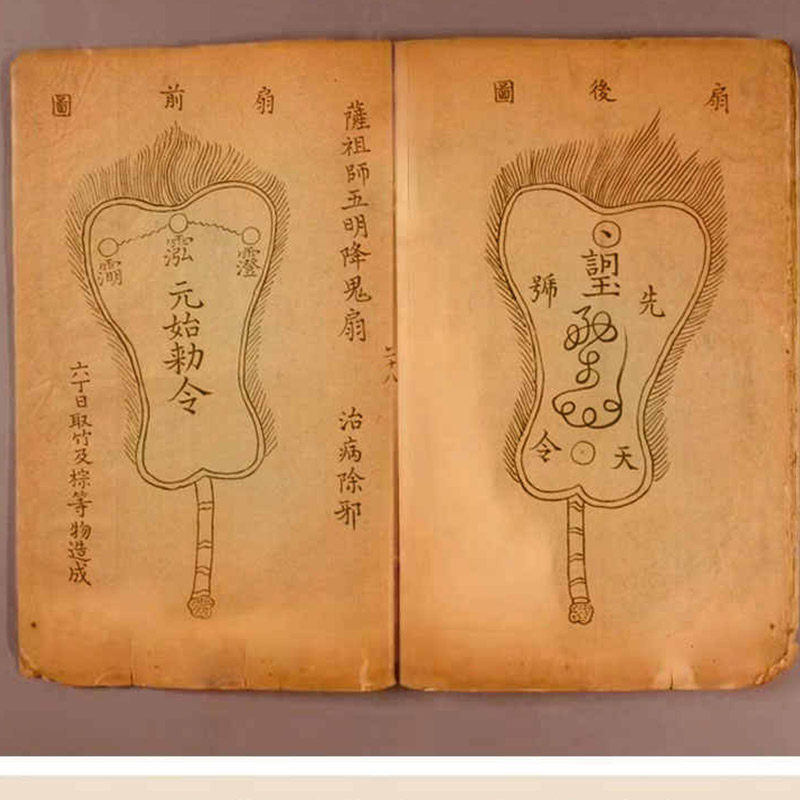 薩祖師五明降鬼扇 治病除邪
扇前圖
元始勅令
六丁日取竹及棕等物造成
扇後圖
先天
號令